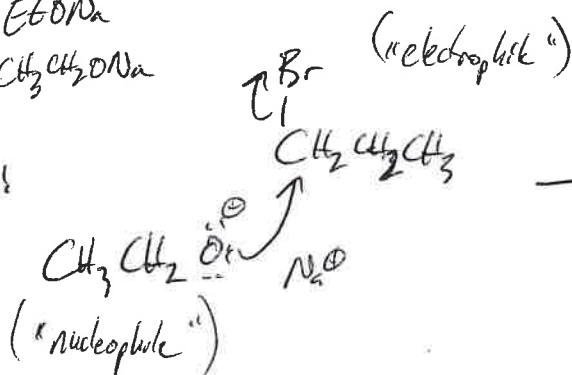 EtONa
CH₃CH₂ONa
Br
("electrophile")
CH₂CH₂CH₃
CH₃CH₂O:⊖
Na⊕
("nucleophile")